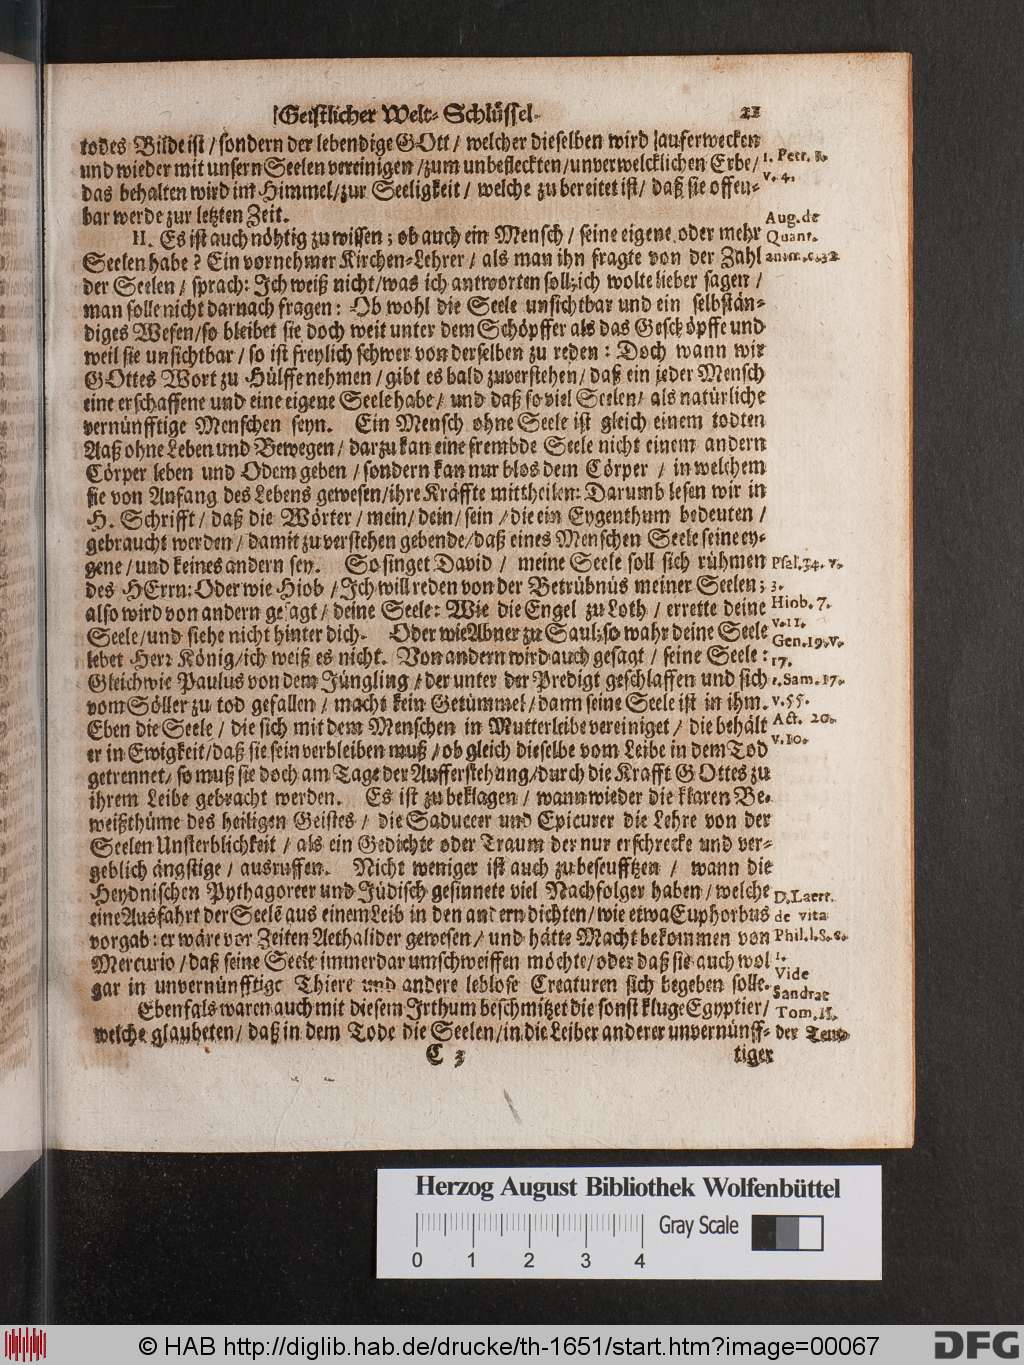 Geistlicher Welt-Schlüssel. 21
todes Bilde ist / sondern der lebendige GOtt / welcher dieselben wird auferwecken
und wieder mit unsern Seelen vereinigen / zum unbefleckten / unverwelcklichen Erbe /
das behalten wird im Himmel / zur Seeligkeit / welche zubereitet ist / daß sie offen-
bar werde zur letzten Zeit.
II. Es ist auch nöhtig zu wissen; ob auch ein Mensch / seine eigene oder mehr
Seelen habe? Ein vornehmer Kirchen-Lehrer / als man ihn fragte von der Zahl
der Seelen / sprach: Ich weiß nicht / was ich antworten soll; ich wolte lieber sagen /
man solle nicht darnach fragen: Ob wohl die Seele unsichtbar und ein selbstän-
diges Wesen / so bleibet sie doch weit unter dem Schöpffer als das Geschöpffe und
weil sie unsichtbar / so ist freylich schwer von derselben zu reden: Doch wann wir
GOttes Wort zu Hülffe nehmen / gibt es bald zuverstehen / daß ein jeder Mensch
eine erschaffene und eine eigene Seele habe / und daß so viel Seelen / als natürliche
vernünfftige Menschen seyn. Ein Mensch ohne Seele ist gleich einem todten
Aaß ohne Leben und Bewegen / darzu kan eine frembde Seele nicht einem andern
Cörper leben und Odem geben / sondern kan nur blos dem Cörper / in welchem
sie von Anfang des Lebens gewesen / ihre Kräffte mittheilen: Darumb lesen wir in
H. Schrifft / daß die Wörter / mein / dein / sein / die ein Eygenthum bedeuten /
gebraucht werden / damit zu verstehen gebende / daß eines Menschen Seele seine ey-
gene / und keines andern sey. So singet David / meine Seele soll sich rühmen
des HErrn: Oder wie Hiob / Ich will reden von der Betrübnüs meiner Seelen;
also wird von andern gesagt / deine Seele: Wie die Engel zu Loth / errette deine
Seele / und siehe nicht hinter dich. Oder wie Abner zu Saul; so wahr deine Seele
lebet Herr König / ich weiß es nicht. Von andern wird auch gesagt / seine Seele:
Gleichwie Paulus von dem Jüngling / der unter der Predigt geschlaffen und sich
vom Söller zu tod gefallen / macht kein Getümmel / dann seine Seele ist in ihm.
Eben die Seele / die sich mit dem Menschen in Mutterleibe vereiniget / die behält
er in Ewigkeit / daß sie sein verbleiben muß / ob gleich dieselbe vom Leibe in dem Tod
getrennet / so muß sie doch am Tage der Aufferstehung / durch die Krafft GOttes zu
ihrem Leibe gebracht werden. Es ist zu beklagen / wann wieder die klaren Be-
weißthüme des heiligen Geistes / die Saduceer und Epicurer die Lehre von der
Seelen Unsterblichkeit / als ein Gedichte oder Traum der nur erschrecke und ver-
geblich ängstige / ausruffen. Nicht weniger ist auch zubeseufftzen / wann die
Heydnischen Pythagoreer und Jüdisch gesinnete viel Nachfolger haben / welche
eine Ausfahrt der Seele aus einem Leib in den andern dichten / wie etwa Euphorbus
vorgab: er wäre vor Zeiten Aethalider gewesen / und hätte Macht bekommen von
Mercurio / daß seine Seele immerdar umschweiffen möchte / oder daß sie auch wol
gar in unvernünfftige Thiere und andere leblose Creaturen sich begeben solle.
Ebenfals waren auch mit diesem Irthum beschmitzet die sonst kluge Egyptier /
welche glaubeten / daß in dem Tode die Seelen / in die Leiber anderer unvernünff-
C 3 tiger
1. Petr. 1.
v. 4.
Aug. de
Quant.
anim. c. 32
Psal. 34. v.
3.
Hiob. 7.
v. 11.
Gen. 19. v.
17.
1. Sam. 17.
v. 55.
Act. 20.
v. 10.
D. Laert.
de vita
Phil. l. 8. c.
1.
Vide
Sandrat
Tom. II.
der Teut
Herzog August Bibliothek Wolfenbüttel
Gray Scale
0 1 2 3 4
© HAB http://diglib.hab.de/drucke/th-1651/start.htm?image=00067
DFG